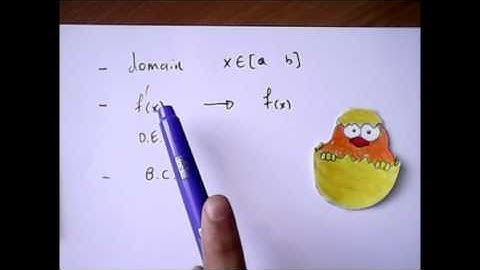 - domain x∈[a b]
- f'(x) → f(x)
D.E.
- B.C.